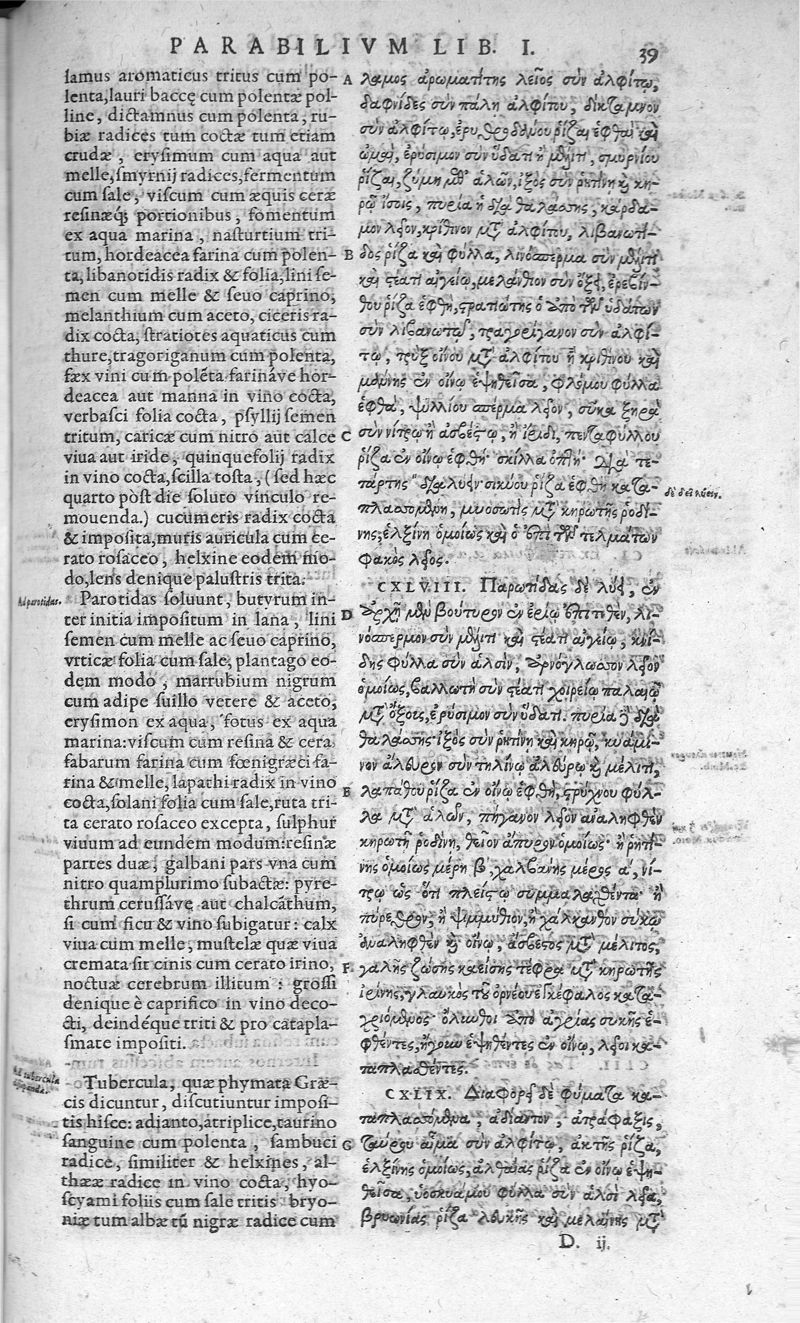 PARABILIVM LIB. I.
39
lamus aromaticus tritus cum po-
lenta, lauri baccę cum polentæ pol-
line, dictamnus cum polenta, ru-
biæ radices tum coctæ tum etiam
crudæ, erysimum cum aqua aut
melle, smyrnij radices, fermentum
cum sale, viscum cum æquis ceræ
resinæq; portionibus, fomentum
ex aqua marina, nasturtium tri-
tum, hordeacea farina cum polen-
ta, libanotidis radix & folia, lini se-
men cum melle & seuo caprino,
melanthium cum aceto, ciceris ra-
dix cocta, stratiotes aquaticus cum
thure, tragoriganum cum polenta,
fæx vini cum polẽta farináve hor-
deacea aut manna in vino cocta,
verbasci folia cocta, psyllij semen
tritum, caricæ cum nitro aut calce
viua aut iride, quinquefolij radix
in vino cocta, scilla tosta, (sed hæc
quarto pòst die soluto vinculo re-
mouenda.) cucumeris radix cocta
& imposita, muris auricula cum ce-
rato rosaceo, helxine eodem mo-
do, lens denique palustris trita.
Ad parotidas.
Parotidas soluunt, butyrum in-
ter initia impositum in lana, lini
semen cum melle ac seuo caprino,
vrticæ folia cum sale, plantago eo-
dem modo, marrubium nigrum
cum adipe suillo vetere & aceto,
erysimon ex aqua, fotus ex aqua
marina: viscum cum resina & cera,
fabarum farina cum fœnigræci fa-
rina & melle, lapathi radix in vino
cocta, solani folia cum sale, ruta tri-
ta cerato rosaceo excepta, sulphur
viuum ad eundem modum: resinæ
partes duæ, galbani pars vna cum
nitro quamplurimo subactæ: pyre-
thrum cerussáve aut chalcãthum,
si cum ficu & vino subigatur: calx
viua cum melle, mustelæ quæ viua
cremata sit cinis cum cerato irino,
noctuæ cerebrum illitum: grossi
denique è caprifico in vino deco-
cti, deindéque triti & pro catapla-
smate impositi.
Ad tubercula
Tubercula, quæ phymata Græ-
cis dicuntur, discutiuntur imposi-
tis hisce: adianto, atriplice, taurino
sanguine cum polenta, sambuci
radice, similiter & helxines, al-
thææ radice in vino cocta, hyo-
scyami foliis cum sale tritis, bryo-
niæ tum albæ tũ nigræ radice cum
A λαμος ἀρωματίτης λεῖος σὺν ἀλφίτῳ,
δαφνίδες σὺν πάλῃ ἀλφίτου, δίκταμνον
σὺν ἀλφίτῳ, ἐρυθροδάνου ῥίζαι ἑφθαὶ καὶ
ὠμαὶ, ἐρύσιμον σὺν ὕδατι ἢ μέλιτι, σμυρνίου
ῥίζαι, ζύμη μεθ' ἁλῶν, ἰξὸς σὺν ῥητίνῃ καὶ κη-
ρῷ ἴσοις, πυρία ἡ διὰ θαλάσσης, κάρδα-
μον λεῖον, κρίθινον μετ' ἀλφίτου, λιβανωτί-
B δος ῥίζα καὶ φύλλα, λινόσπερμα σὺν μέλιτι
καὶ στέατι αἰγείῳ, μελάνθιον σὺν ὄξει, ἐρεβίν-
θου ῥίζα ἑφθὴ, στρατιώτης ὁ ἀπὸ τῶν ὑδάτων
σὺν λιβανωτῷ, τραγορίγανον σὺν ἀλφί-
τῳ, τρὺξ οἴνου μετ' ἀλφίτου ἢ κριθίνου καὶ
μάννης ἐν οἴνῳ ἑψηθεῖσα, φλόμου φύλλα
ἑφθὰ, ψυλλίου σπέρμα λεῖον, σῦκα ξηρὰ
C σὺν νίτρῳ ἢ ἀσβέστῳ, ἢ ἴριδι, πενταφύλλου
ῥίζα ἐν οἴνῳ ἑφθὴ· σκίλλα ὀπτή· διὰ τε-
τάρτης διαλύειν· σικύου ῥίζα ἑφθὴ κατα-
πλασσομένη, μυοσωτὶς μετὰ κηρωτῆς ῥοδί-
νης, ἑλξίνη ὁμοίως καὶ ὁ ἐπὶ τῶν τελμάτων
φακὸς λεῖος.
CXLVIII. Παρωτίδας δὲ λύει, ἐν
D ἀρχῇ μὲν βούτυρον ἐν ἐρίῳ ἐπιτιθὲν, λι-
νόσπερμον σὺν μέλιτι καὶ στέατι αἰγείῳ, κνί-
δης φύλλα σὺν ἁλσὶν, ἀρνόγλωσσον λεῖον
ὁμοίως, βαλλωτὴ σὺν στέατι χοιρείῳ παλαιῷ
μετ' ὄξους, ἐρύσιμον σὺν ὕδατι. πυρία ἡ διὰ
θαλάσσης· ἰξὸς σὺν ῥητίνῃ καὶ κηρῷ, κυάμι-
νον ἄλευρον σὺν τηλίνῳ ἀλεύρῳ καὶ μέλιτι,
E λαπάθου ῥίζα ἐν οἴνῳ ἑφθὴ, στρύχνου φύλ-
λα μεθ' ἁλῶν, πήγανον λεῖον ἀναληφθὲν
κηρωτῇ ῥοδίνῃ, θεῖον ἄπυρον ὁμοίως· ἢ ῥητί-
νης ὁμοίως μέρη β', χαλβάνης μέρος α', νί-
τρῳ ὡς ὅτι πλείστῳ συμμαλαχθέντα· ἢ
πύρεθρον, ἢ ψιμμύθιον, ἢ χάλκανθον σύκῳ
ἀναληφθὲν καὶ οἴνῳ, ἄσβεστος μετὰ μέλιτος,
F γαλῆς ζώσης καείσης τέφρα μετὰ κηρωτῆς
ἰρίνης, γλαυκὸς τοῦ ὀρνέου ἐγκέφαλος κατα-
χριόμενος· ὄλυνθοι ἀπὸ ἀγρίας συκῆς ἑ-
φθέντες, ἤγουν ἑψηθέντες ἐν οἴνῳ, λεῖοι κα-
ταπλασθέντες.
CXLIX. Διαφορεῖ δὲ φύματα κα-
ταπλασσόμενα, ἀδίαντον, ἀτράφαξις,
G ταύρου αἷμα σὺν ἀλφίτῳ, ἀκτῆς ῥίζα,
ἑλξίνης ὁμοίως, ἀλθαίας ῥίζα ἐν οἴνῳ ἑψη-
θεῖσα, ὑοσκυάμου φύλλα σὺν ἁλσὶ λεῖα,
βρυωνίας ῥίζα λευκῆς καὶ μελαίνης μετὰ
D. ij.